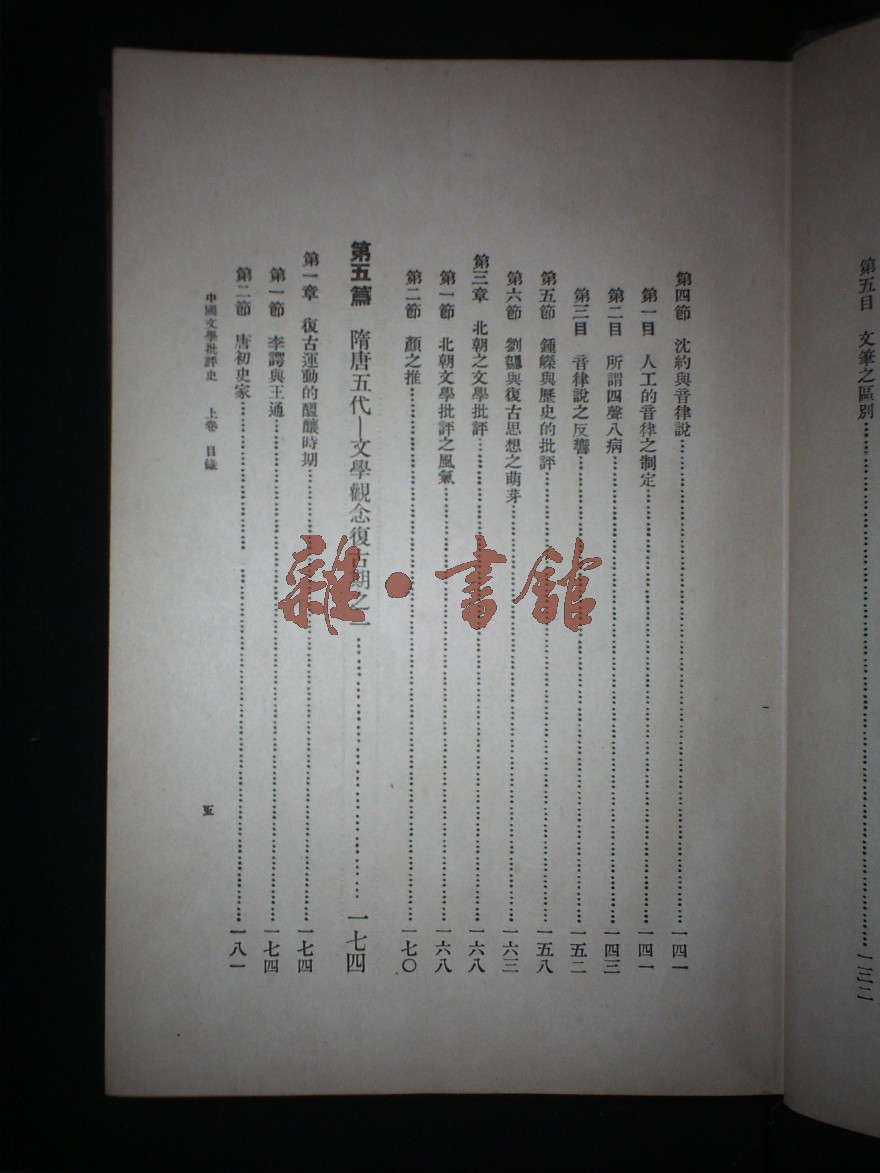 第五目　文筆之區別……一三二
第四節　沈約與音律說……一四一
第一目　人工的音律之制定……一四一
第二目　所謂四聲八病……一四三
第三目　音律說之反響……一五二
第五節　鍾嶸與歷史的批評……一五八
第六節　劉勰與復古思想之萌芽……一六三
第三章　北朝之文學批評……一六八
第一節　北朝文學批評之風氣……一六八
第二節　顏之推……一七〇
第五篇　隋唐五代—文學觀念復古期之一……一七四
第一章　復古運動的醞釀時期……一七四
第一節　李諤與王通……一七四
第二節　唐初史家……一八一
中國文學批評史　上卷　目錄
五
雜·書館